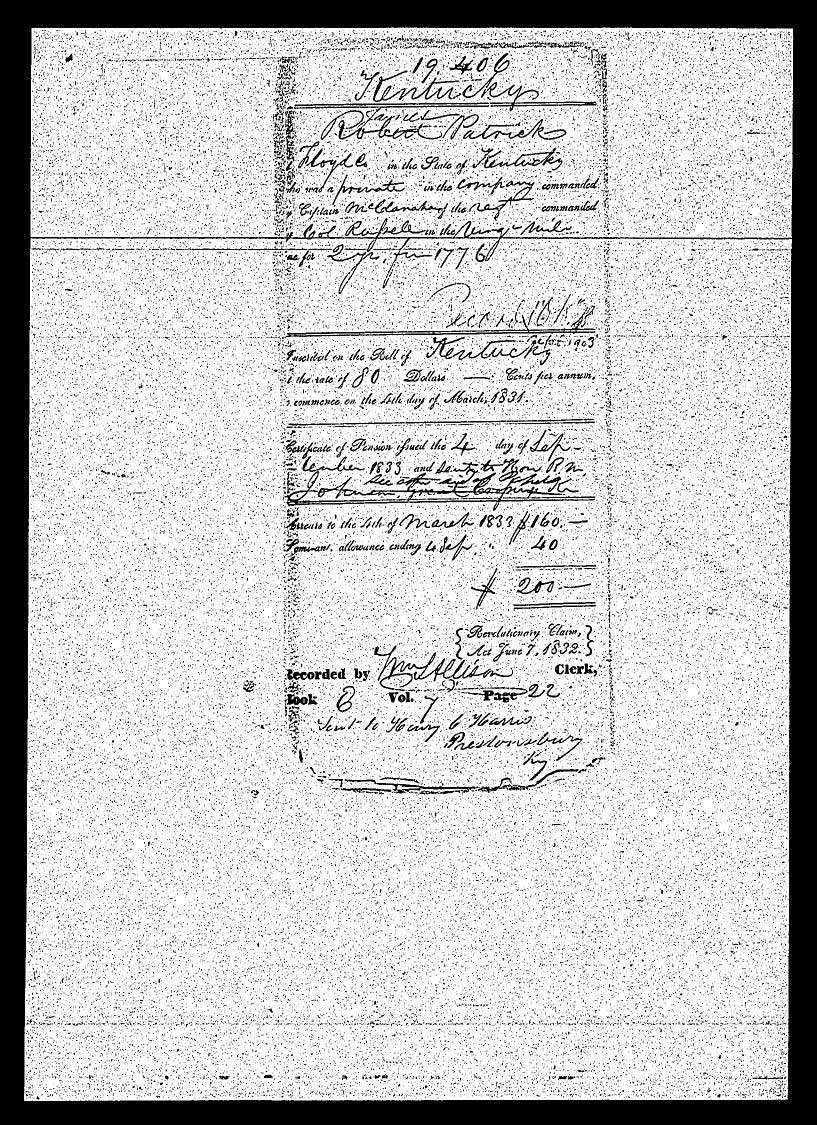 19.406
Kentucky
James
Robert Patrick
Floyd Co in the State of Kentucky
ho was a private in the company commanded
y Captain McClanahan of the regt commanded
y Col Russell in the Virg. Mil
ne for 2 yr. from 1776
Inscribed on the Roll of Kentucky
t the rate of 80 Dollars — Cents per annum,
commence on the 4th day of March, 1831.
Certificate of Pension issued the 4 day of Sep-
tember 1833 and sent to Hon R. M.
Johnson, Great Crossings Ky
Arrears to the 4th of March 1833 $160.—
Semi-anl. allowance ending 4 Sep " 40
$ 200.—
Revolutionary Claim,
Act June 7, 1832.
Recorded by Wm S Allison Clerk,
Book B Vol. 7 Page 22
Sent to Henry C Harris
Prestonsburg
Ky